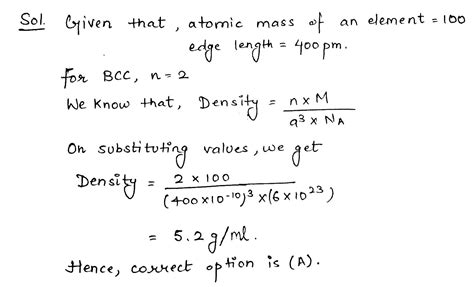 Sol. Given that, atomic mass of an element = 100
edge length = 400 pm.
For BCC, n = 2
We know that, Density = n × M / a³ × NA
On substituting values, we get
Density = 2 × 100 / (400 × 10⁻¹⁰)³ × (6 × 10²³)
= 5.2 g/ml.
Hence, correct option is (A).